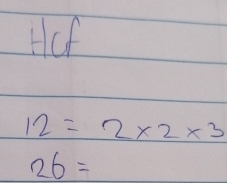 Hcf
12 = 2 × 2 × 3
26 =